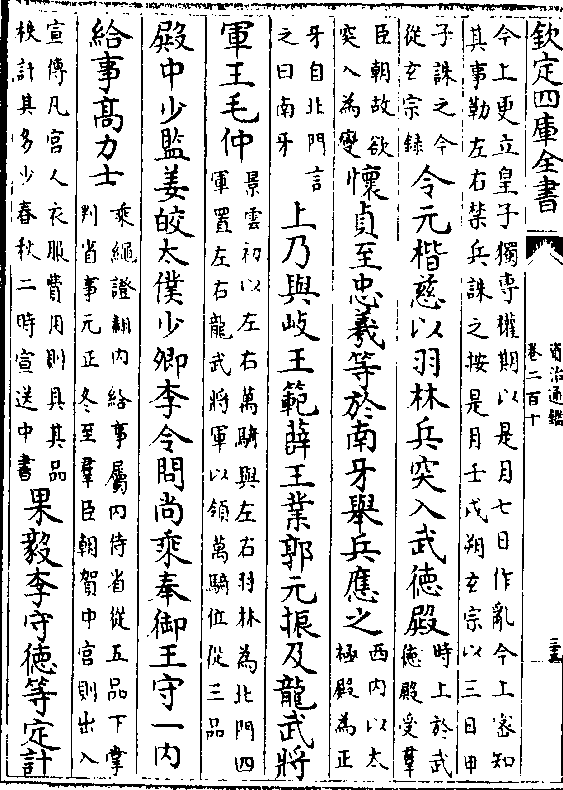 欽定四庫全書
資治通鑑
卷二百十
今上更立皇子獨專權期以是月七日作亂今上密知
其事勒左右禁兵誅之按是月壬戌朔玄宗以三日甲
子誅之今
從玄宗錄
令元楷慈以羽林兵突入武徳殿
時上於武
徳殿受羣
臣朝故欲
突入為變
懷貞至忠羲等於南牙舉兵應之
西内以太
極殿為正
牙自北門言
之曰南牙
上乃與岐王範薛王業郭元振及龍武將
軍王毛仲
景雲初以左右萬騎與左右羽林為北門四
軍置左右龍武將軍以領萬騎位從三品
殿中少監姜皎太僕少卿李令問尚乘奉御王守一内
給事髙力士
乘繩證翻内給事屬内侍省從五品下掌
判省事元正冬至羣臣朝賀中宮則出入
宣傳凡宮人衣服費用則具其品
秩計其多少春秋二時宣送中書
果毅李守徳等定計